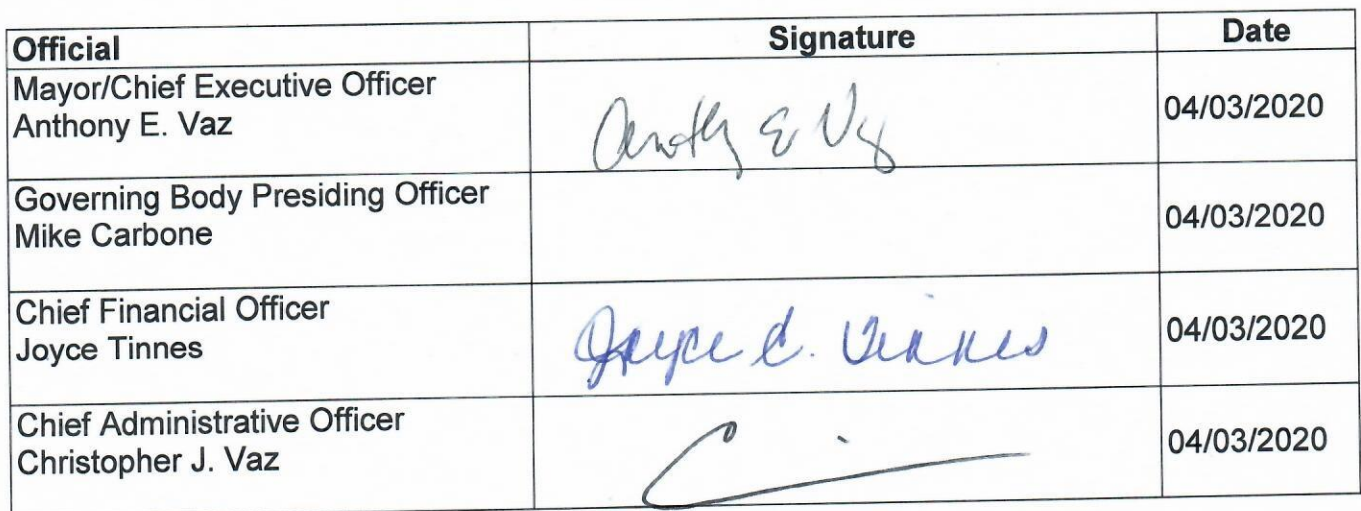 Official Signature Date
Mayor/Chief Executive Officer
Anthony E. Vaz
Anthony E Vaz
04/03/2020
Governing Body Presiding Officer
Mike Carbone
04/03/2020
Chief Financial Officer
Joyce Tinnes
Joyce C. Tinnes
04/03/2020
Chief Administrative Officer
Christopher J. Vaz
04/03/2020